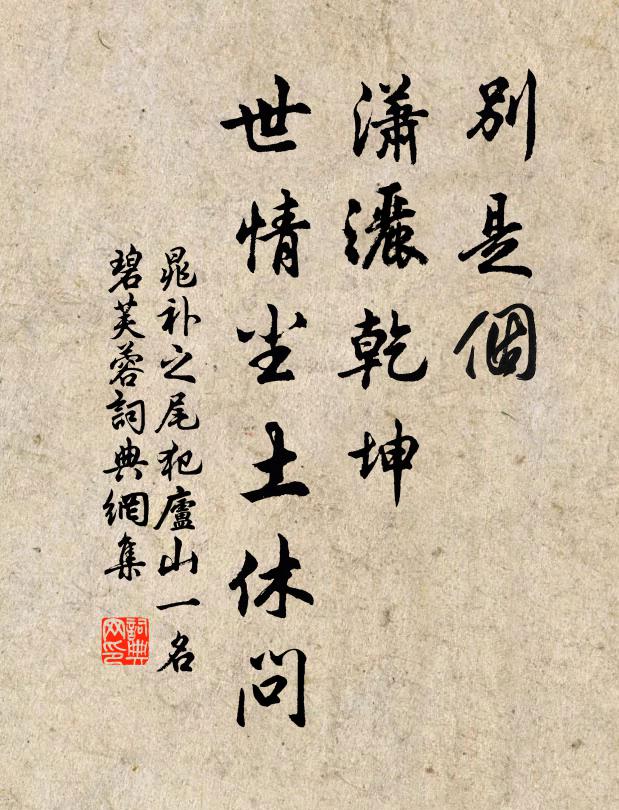 別是個
瀟灑乾坤
世情尘土休問
晁补之尾犯廬山一名
碧芙蓉詞典網集
詞典网印